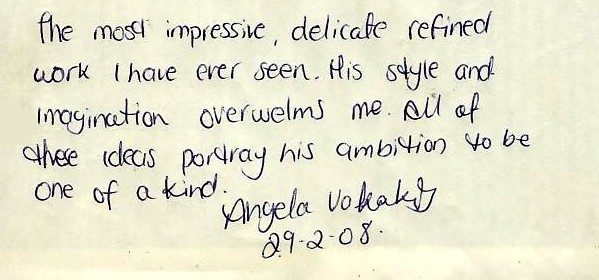 The most impressive, delicate refined
work I have ever seen. His style and
imagination overwelms me. All of
thee ideas portray his ambition to be
one of a kind.
Angela
29-2-08.